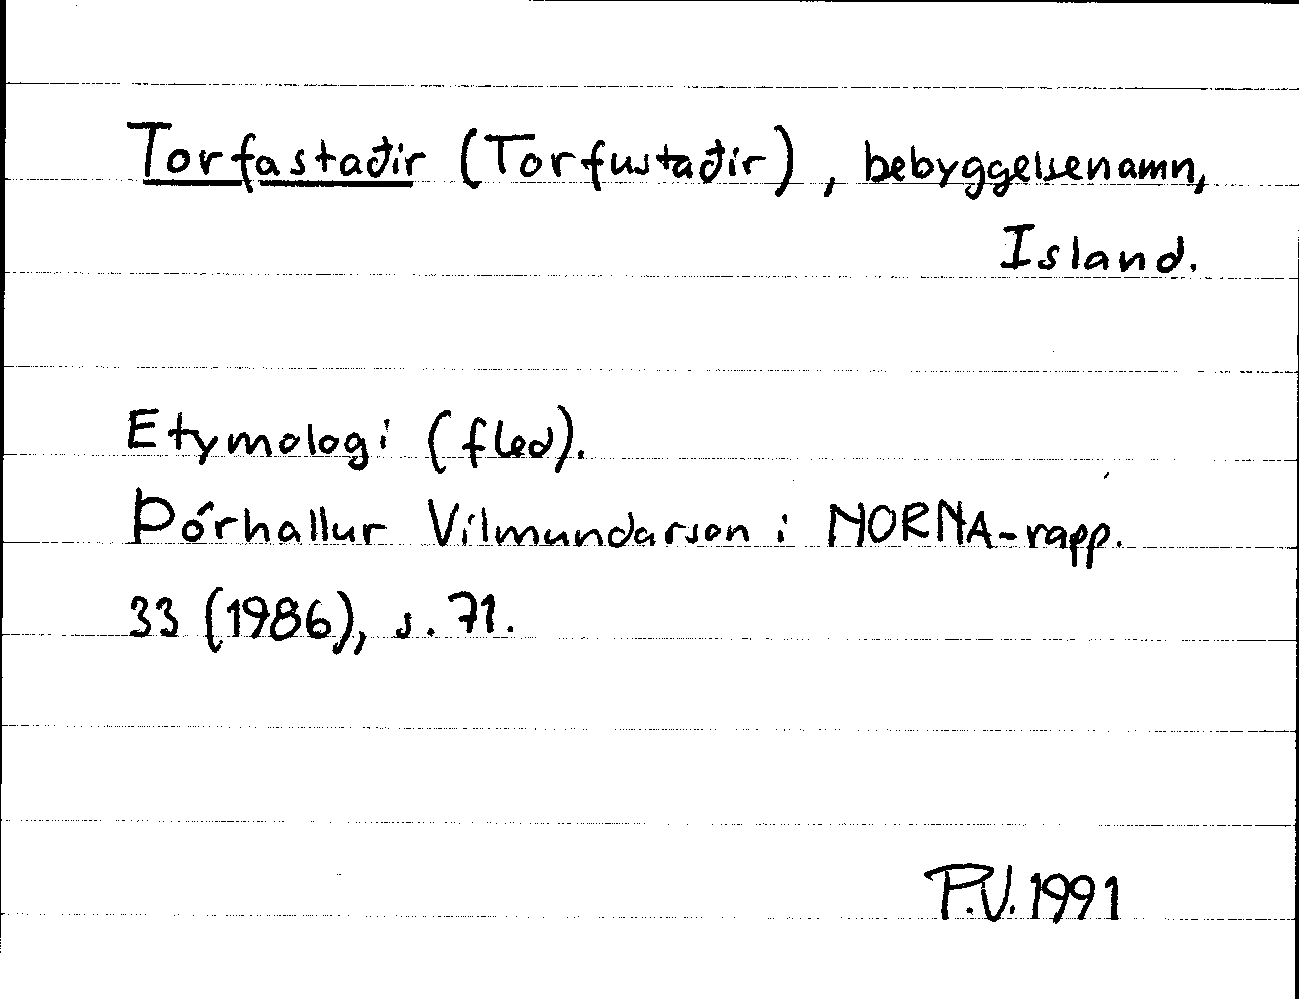 Torfastaðir (Torfustaðir), bebyggelsenamn,
Island.
Etymologi (fled).
Þórhallur Vilmundarson i NORNA-rapp.
33 (1986), s. 71.
P.V. 1991